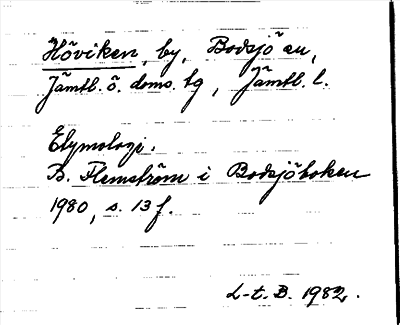 Höviken, by, Bodsjö sn,
Jämtl. ö. doms. tg, Jämtl. l.
Etymologi.
B. Flemström i Bodsjöboken
1980, s. 13 f.
L-t. B. 1982.